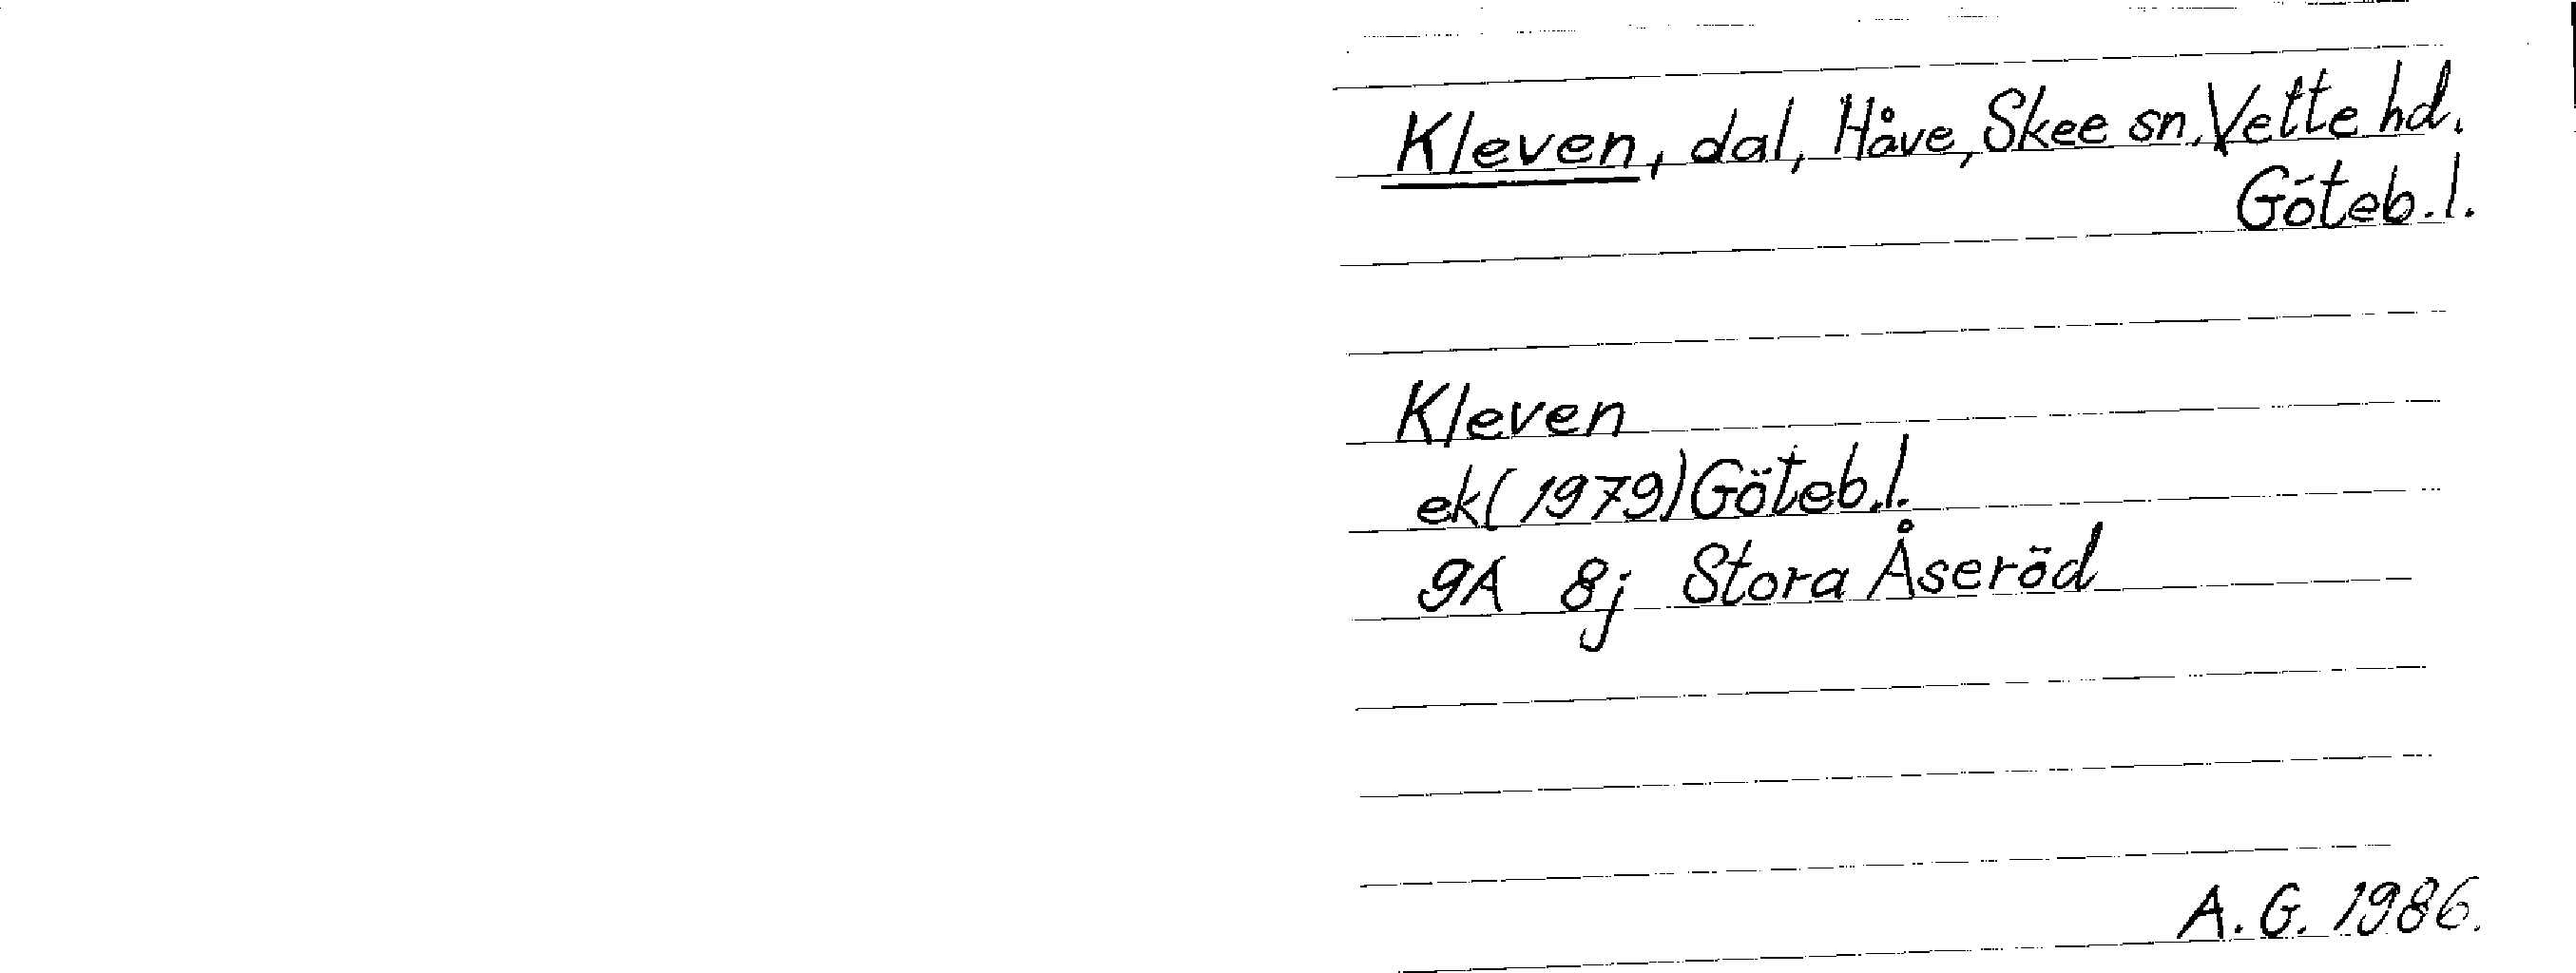 Kleven, dal, Håve, Skee sn, Vette hd.
Göteb.l.
Kleven
ek(1979)Göteb.l.
9A 8j Stora Åseröd
A.G. 1986.